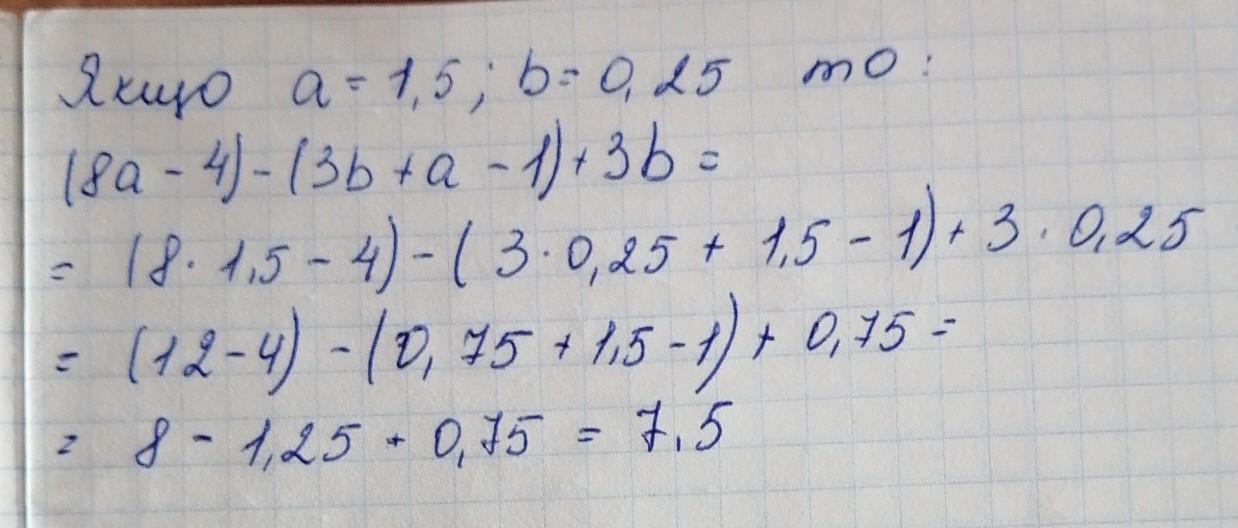 Якщо a = 1,5 ; b = 0,25 то :
(8a - 4) - (3b + a - 1) + 3b =
= (8 · 1,5 - 4) - ( 3 · 0,25 + 1,5 - 1) + 3 · 0,25
= (12 - 4) - (0,75 + 1,5 - 1) + 0,75 =
= 8 - 1,25 + 0,75 = 7,5